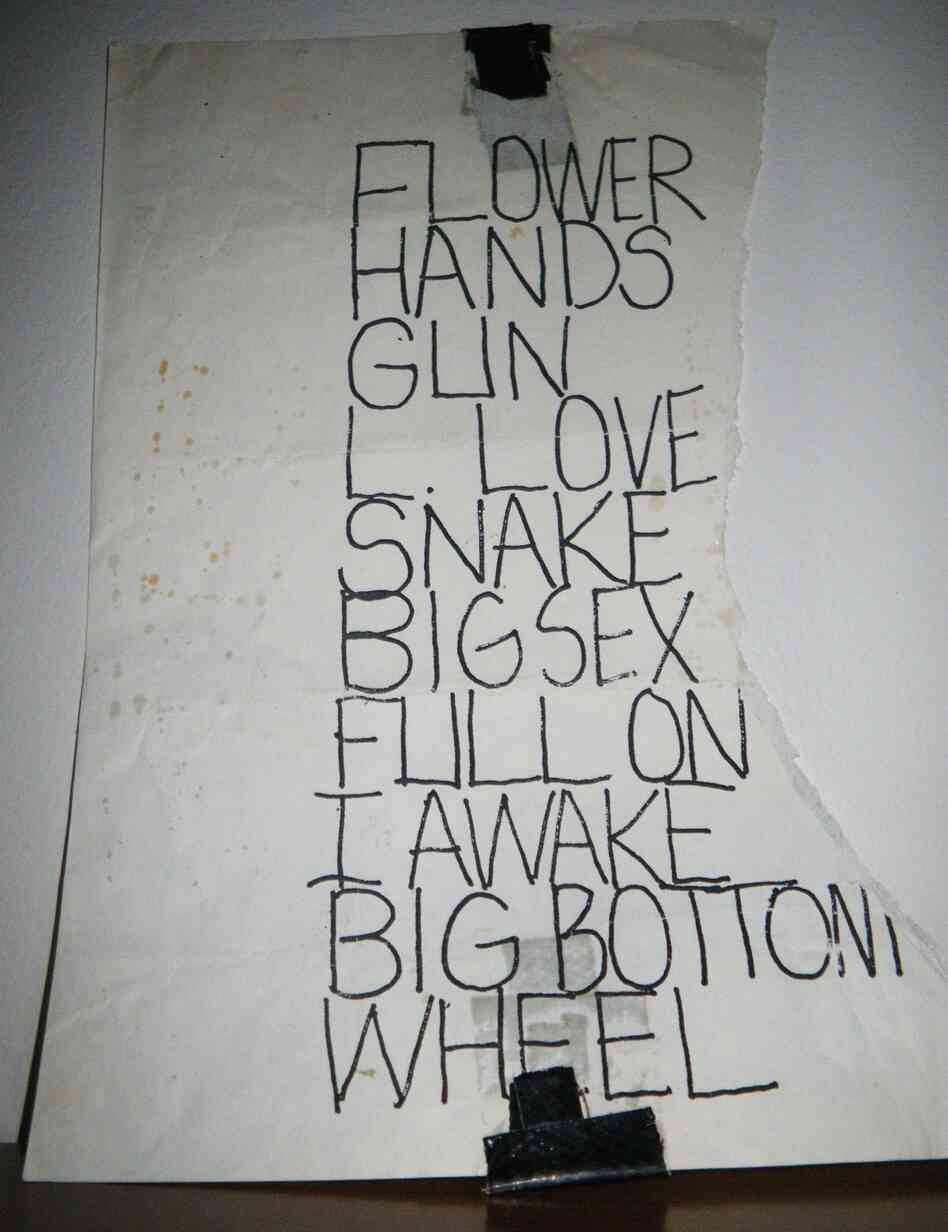 FLOWER
HANDS
GUN
L. LOVE
SNAKE
BIG SEX
FULL ON
I AWAKE
BIG BOTTOM
WHEEL